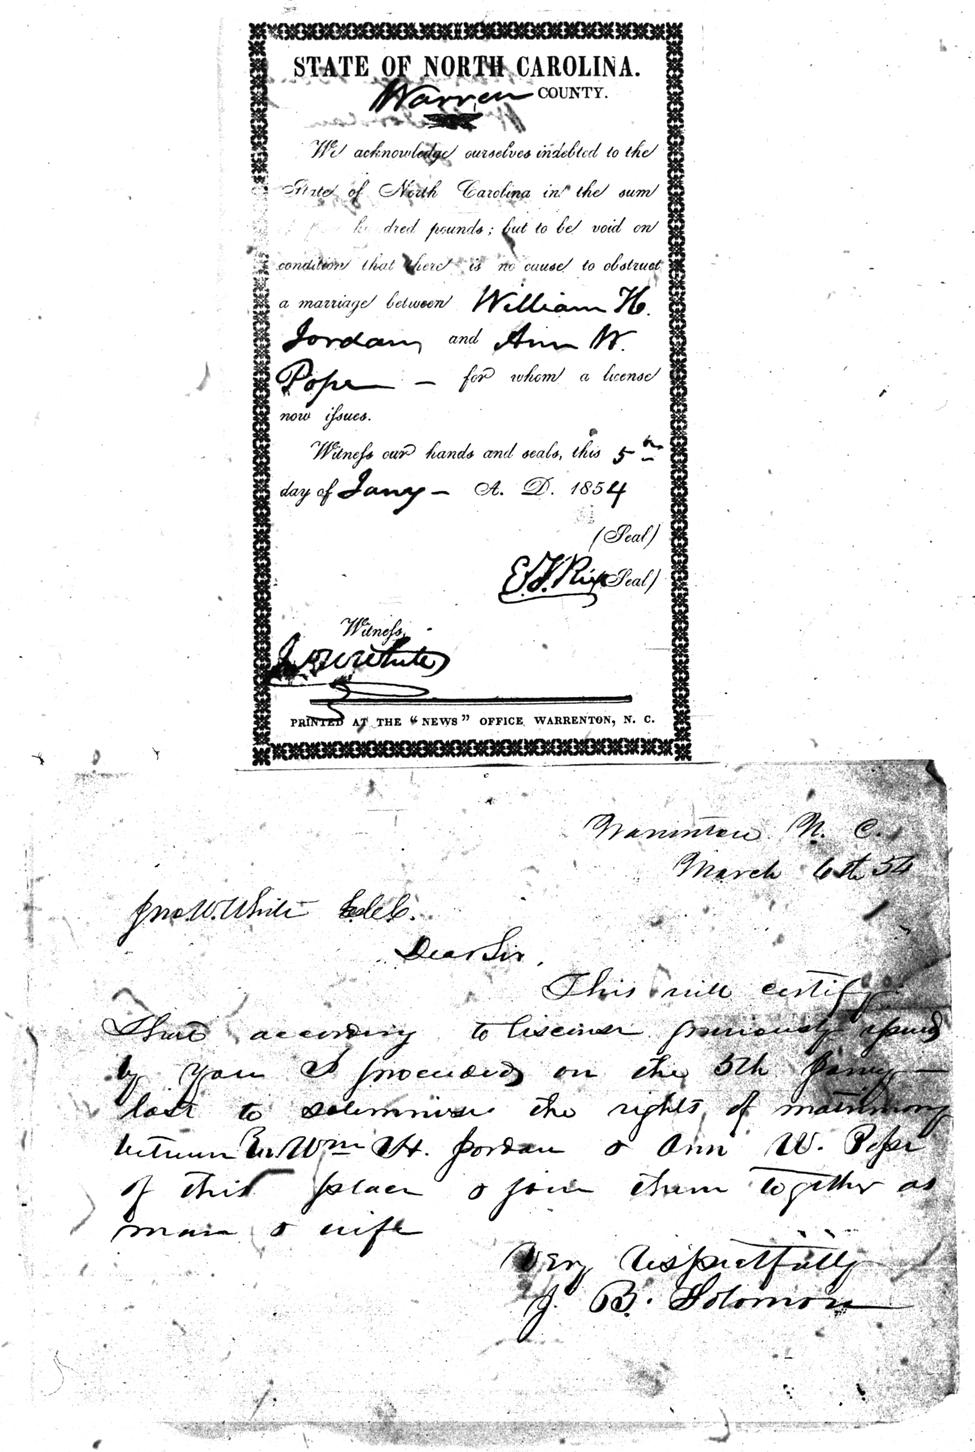 STATE OF NORTH CAROLINA.
Warren COUNTY.
We acknowledge ourselves indebted to the
State of North Carolina in the sum
hundred pounds; but to be void on
condition that there is no cause to obstruct
a marriage between William H.
Jordan, and Ann W.
Pope — for whom a license
now issues.
Witness our hands and seals, this 5th
day of Jany — A. D. 1854
(Seal)
(Seal)
Witness,
White
PRINTED AT THE "NEWS" OFFICE WARRENTON, N. C.
Warrenton N. C.
March 6th 54
Jno W. White
Dear Sir,
This will certify
that according to license previously issued
by you I proceeded on the 5th Jany —
last to solemnise the rights of matrimony
between Wm H. Jordan & Ann W. Pope
of this place & join them together as
man & wife
Very respectfully
J. B. Solomon